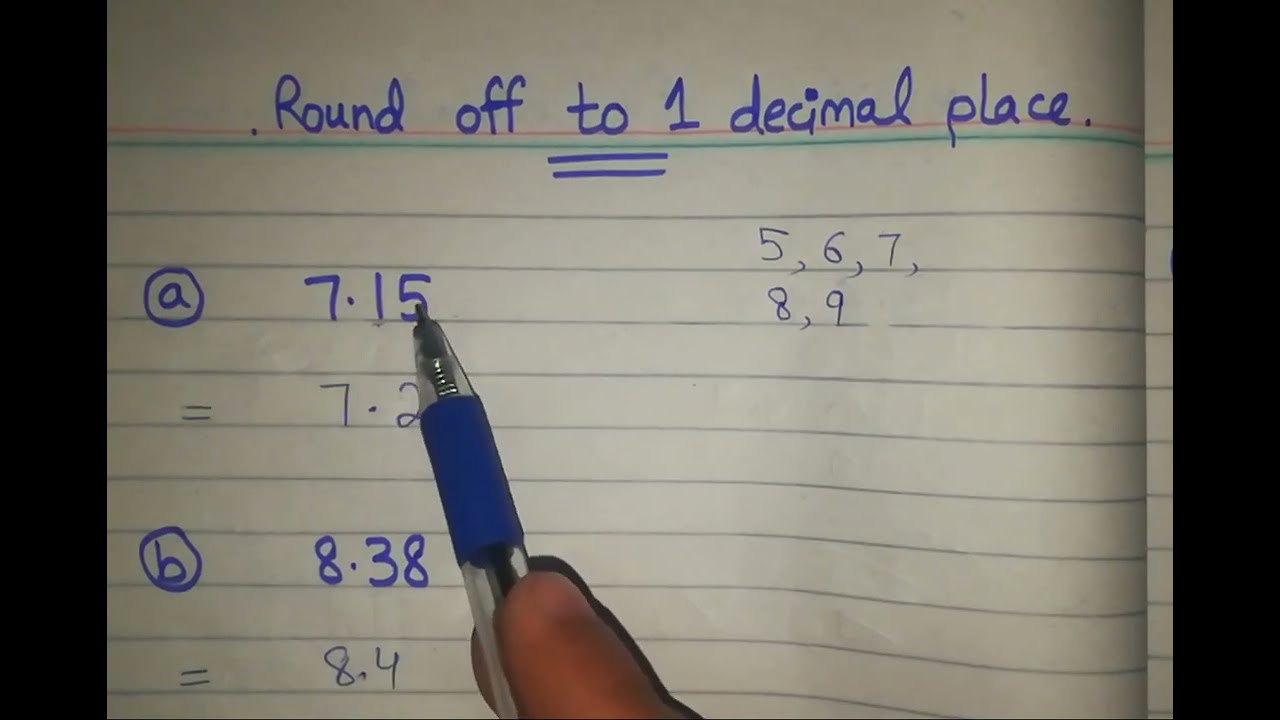 . Round off to 1 decimal place.
5, 6, 7,
8, 9
a 7.15
= 7.2
b 8.38
= 8.4